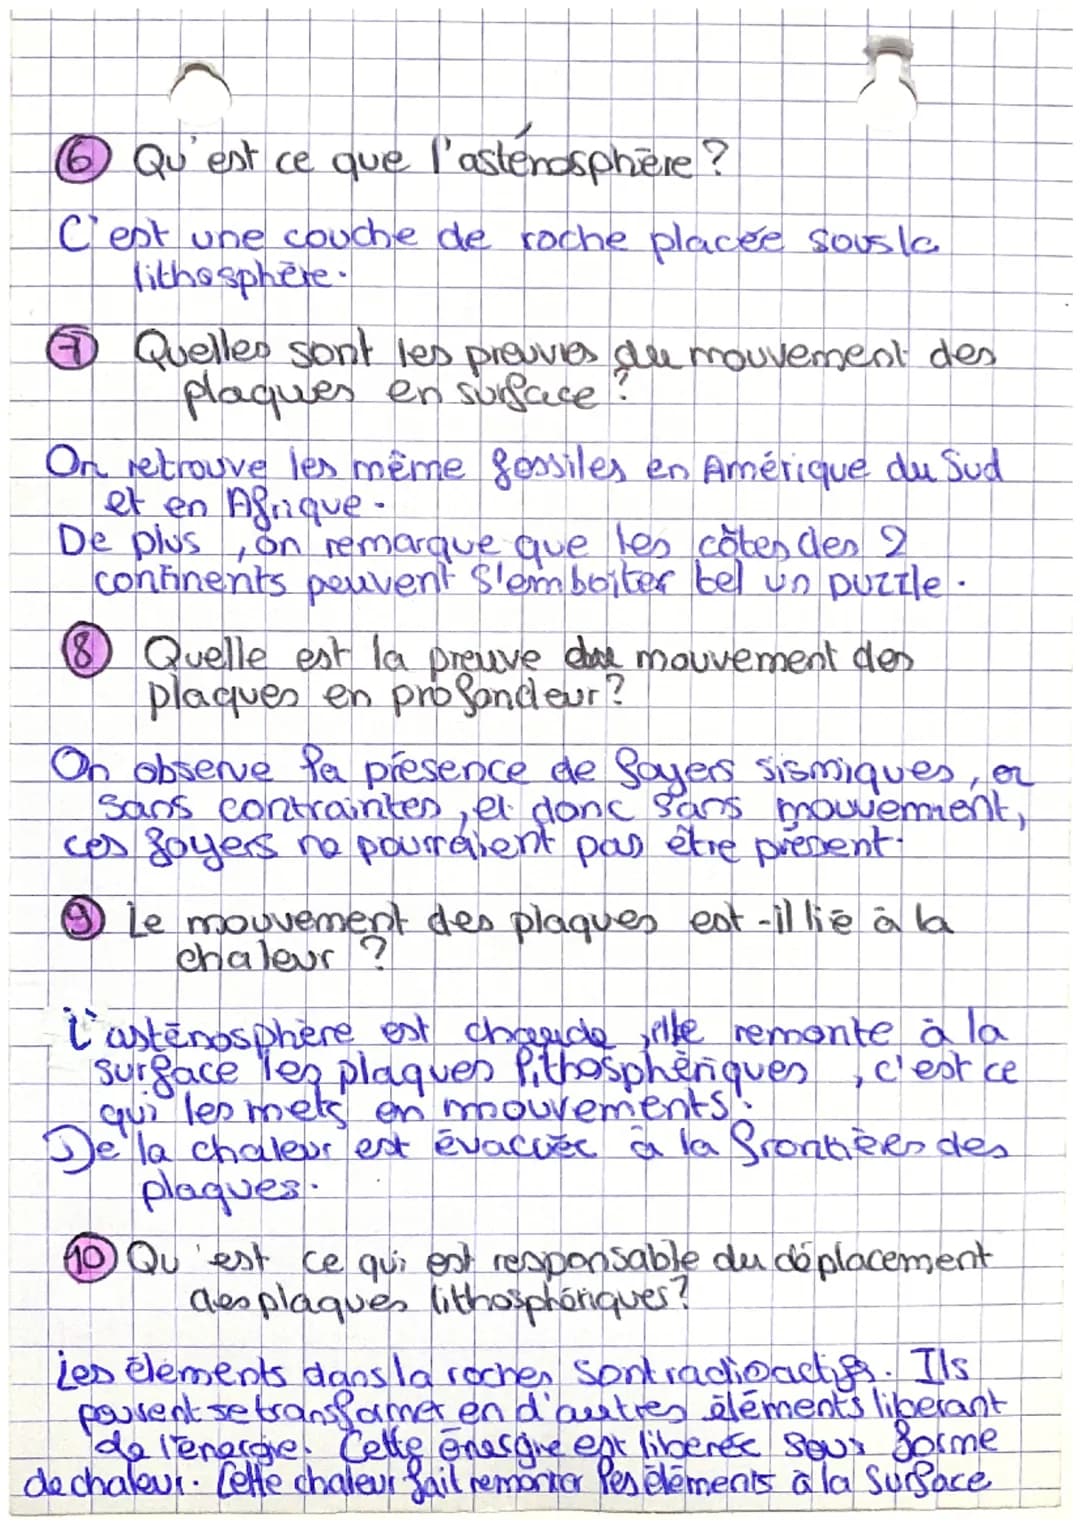 6 Qu'est ce que l'asténosphère ?
C'est une couche de roche placée sous la
lithosphère.
7 Quelles sont les preuves du mouvement des
plaques en surface ?
On retrouve les même fossiles en Amérique du Sud
et en Afrique.
De plus, on remarque que les côtes des 2
continents peuvent s'emboîter tel un puzzle.
8 Quelle est la preuve du mouvement des
plaques en profondeur ?
On observe la présence de foyers sismiques, or
sans contraintes, et donc sans mouvement,
ces foyers ne pourraient pas être présent.
9 Le mouvement des plaques est-il lié à la
chaleur ?
L'asténosphère est chaude, elle remonte à la
surface les plaques lithosphériques, c'est ce
qui les mets en mouvements.
De la chaleur est évacuée à la frontières des
plaques.
10 Qu'est ce qui est responsable du déplacement
des plaques lithosphériques ?
Les éléments dans la roches sont radioactifs. Ils
peuvent se transformer en d'autres éléments liberant
de l'énergie. Cette énergie est liberée sous forme
de chaleur. Cette chaleur fait remonter les éléments à la surface